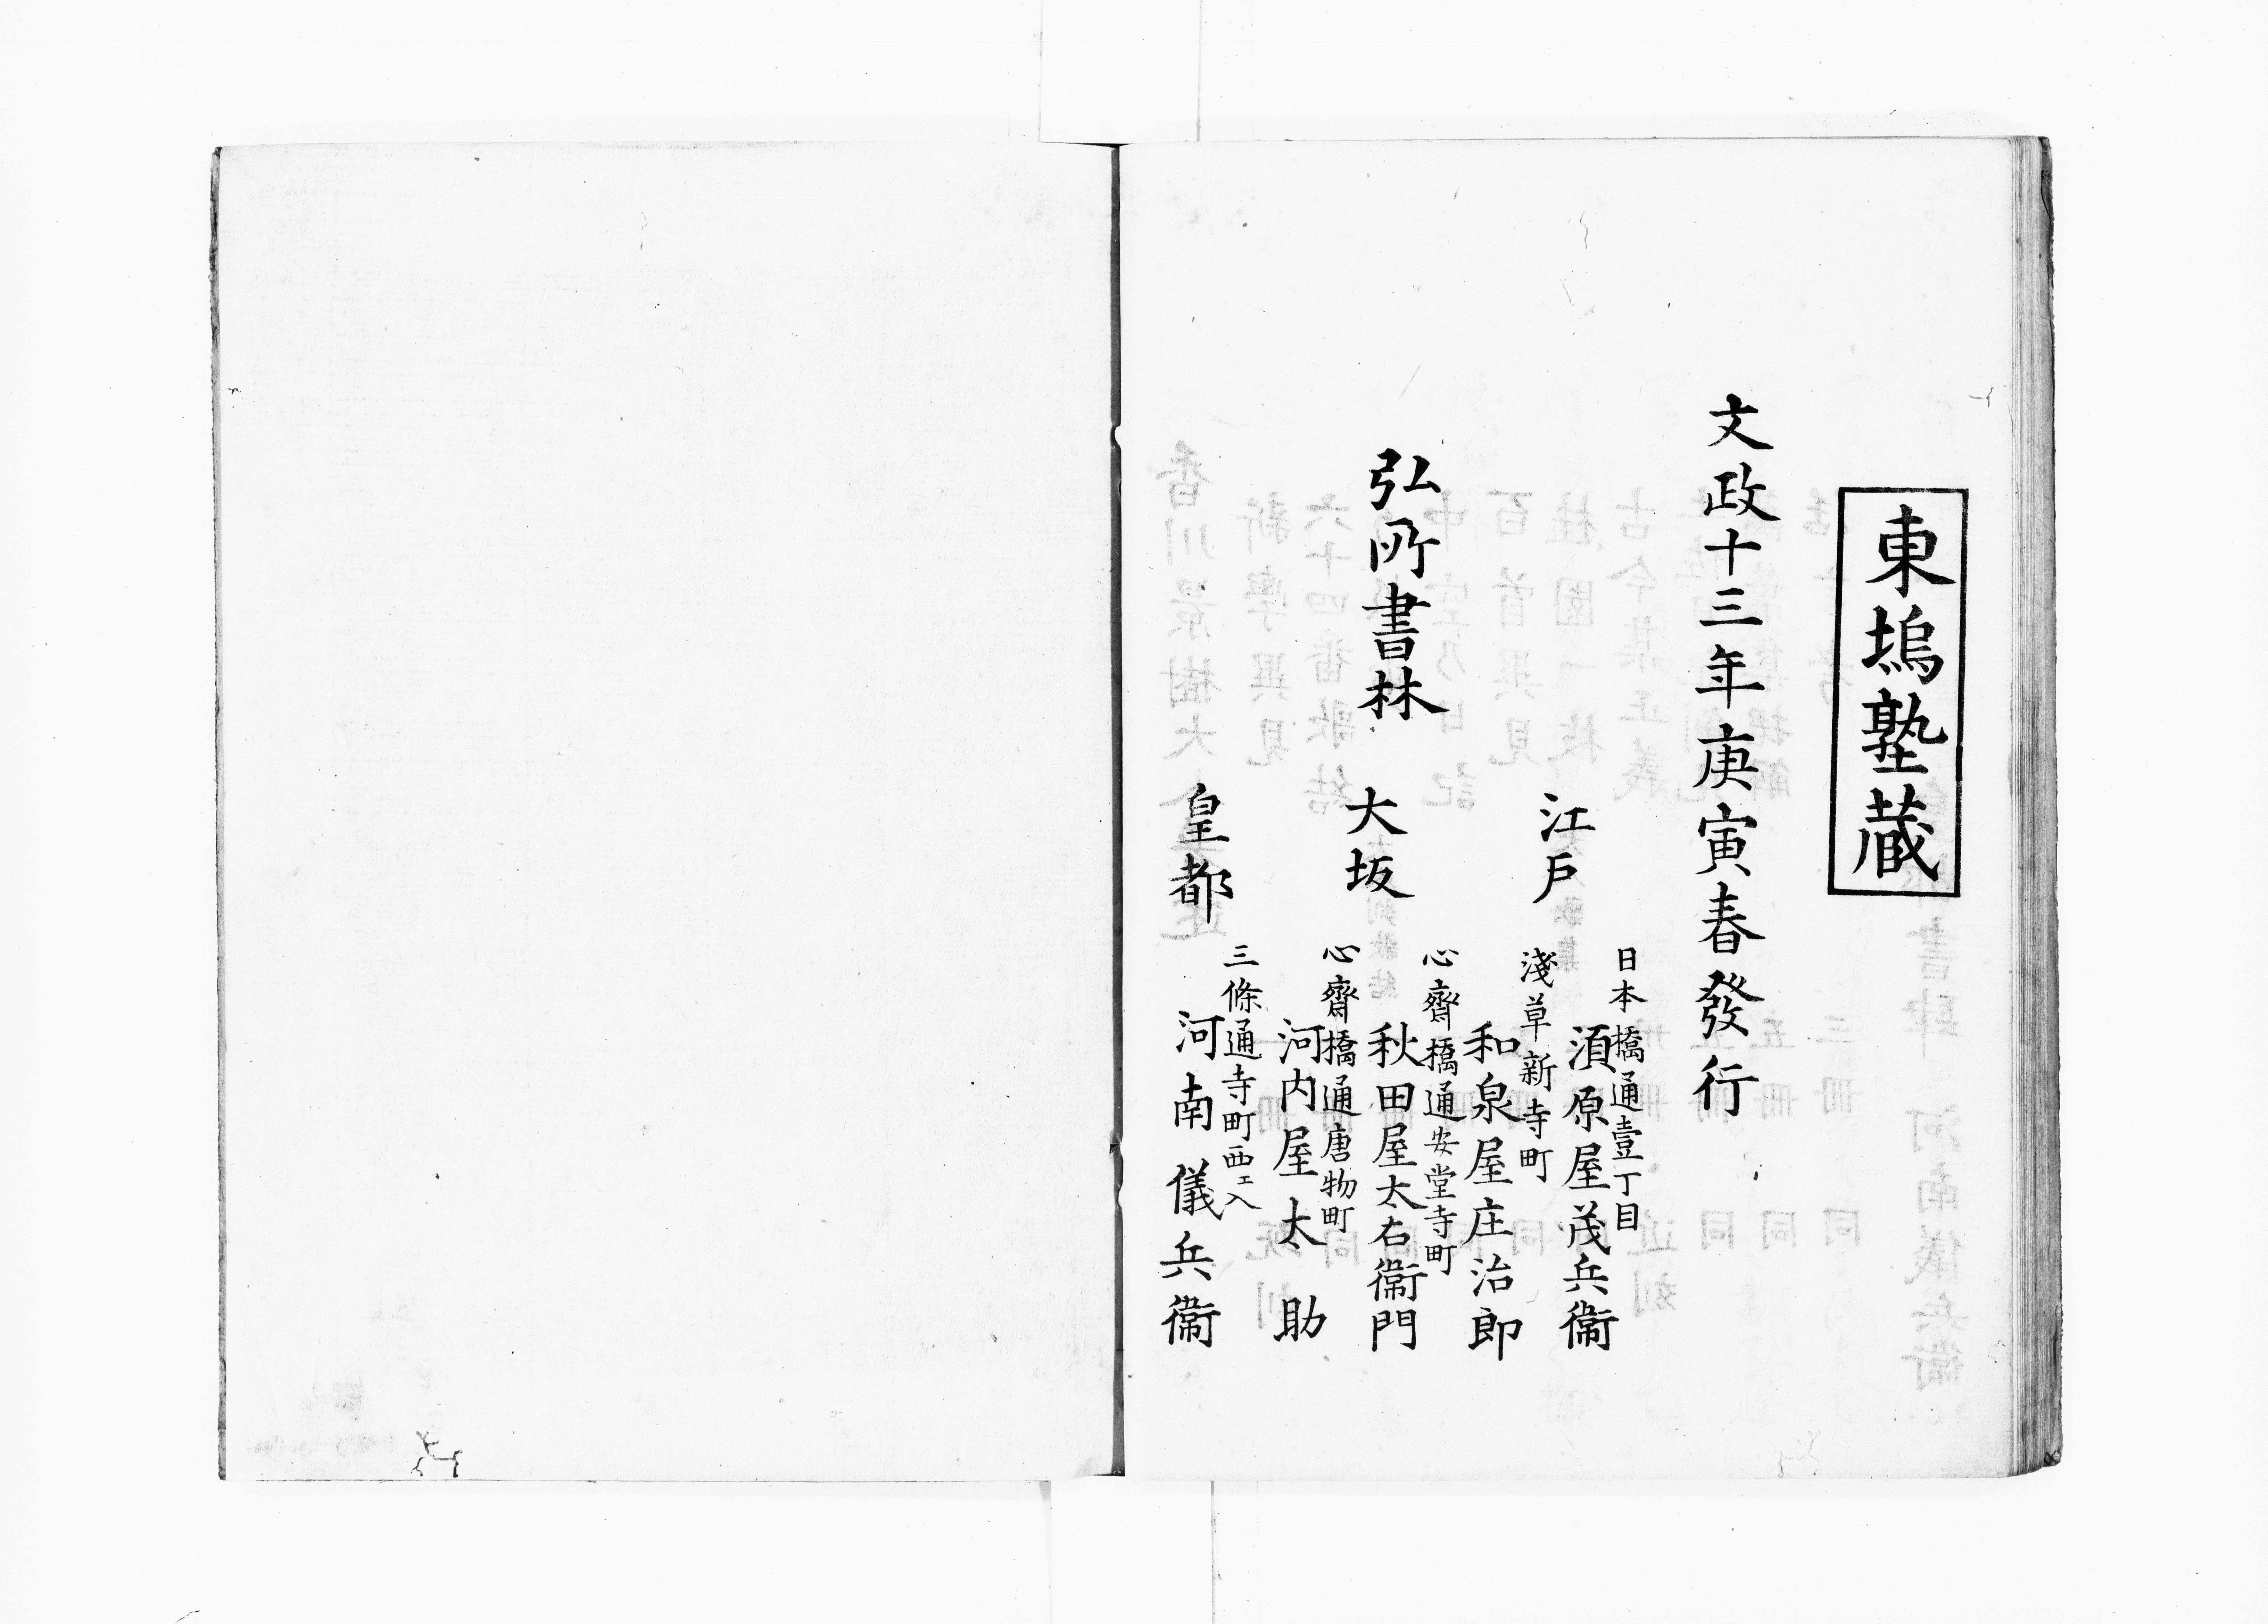 東塢塾蔵
文政十三年庚寅春發行
弘所書林
江戸
日本橋通壹丁目
須原屋茂兵衞
淺草新寺町
和泉屋庄治郎
大坂
心齋橋通安堂寺町
秋田屋太右衞門
心齋橋通唐物町
河内屋太助
皇都
三條通寺町西エ入
河南儀兵衞